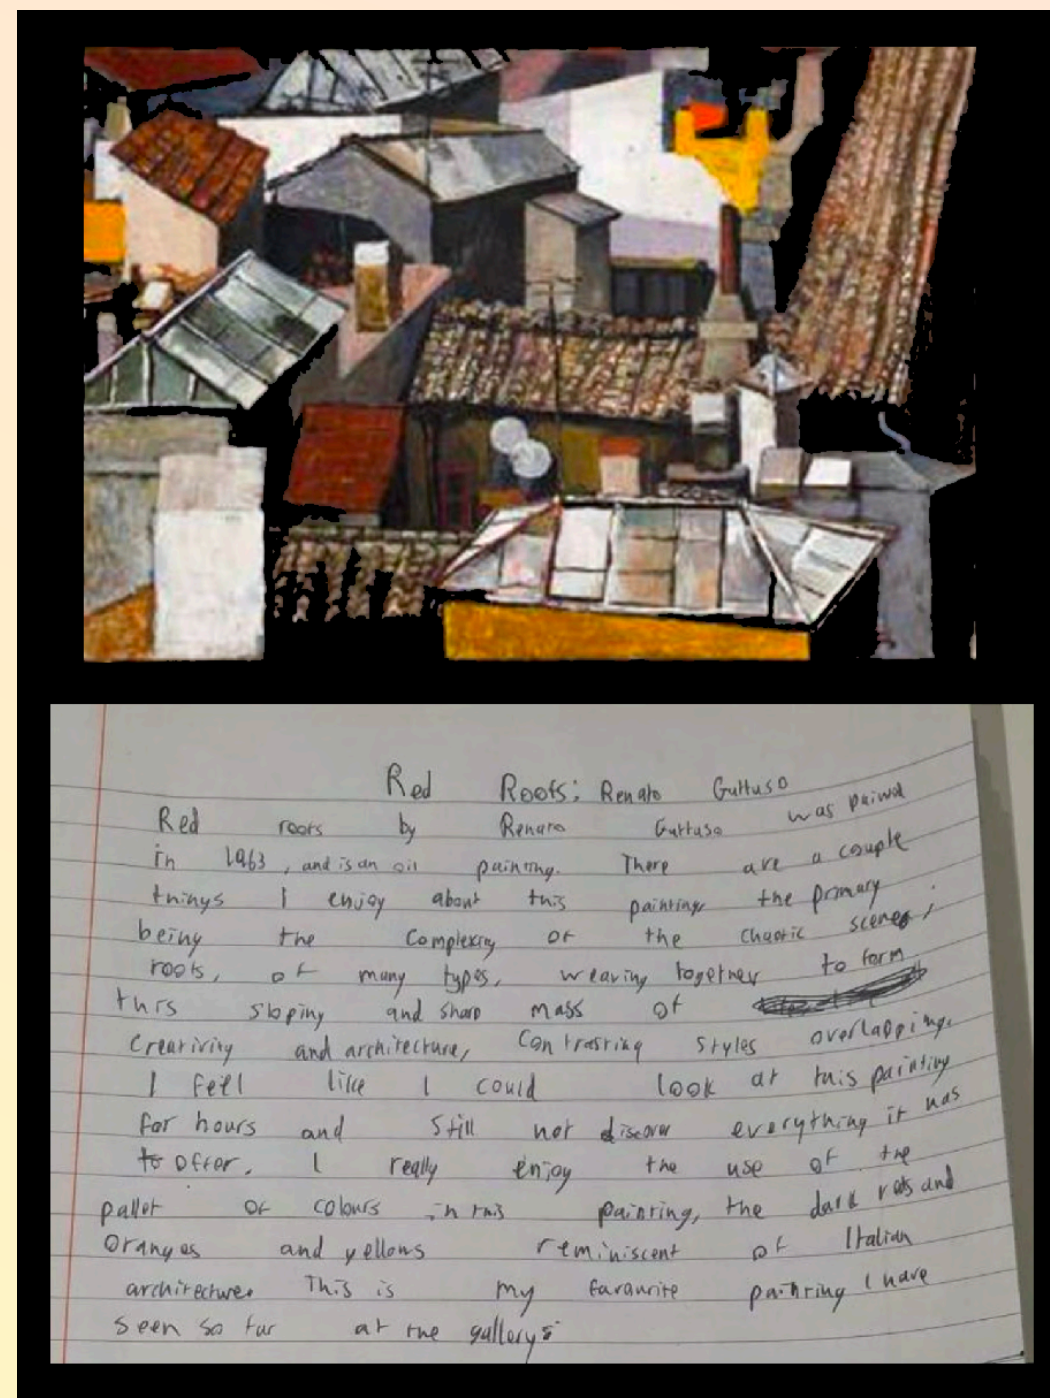 Red Roofs: Renato Guttuso
Red roofs by Renato Guttuso was painted
in 1963, and is an oil painting. There are a couple
things I enjoy about this painting, the primary
being the complexity of the chaotic scene;
roofs, of many types, weaving together to form
this sloping and sharp mass of
creativity and architecture, contrasting styles overlapping.
I feel like I could look at this painting
for hours and still not discover everything it has
to offer. I really enjoy the use of the
pallet of colours in this painting, the dark reds and
oranges and yellows reminiscent of Italian
architecture. This is my favourite painting I have
seen so far at the gallery